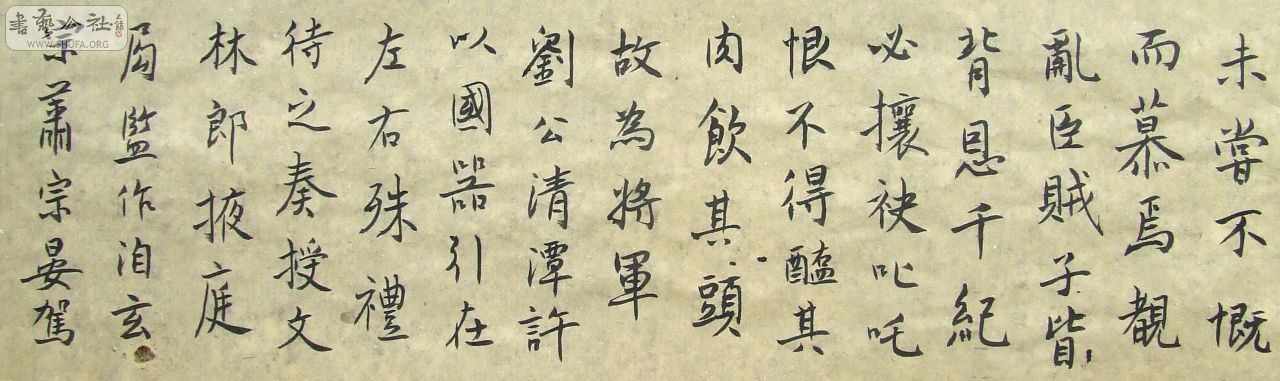 未嘗不慨
而慕焉覩
亂臣賊子皆
背恩千紀
必攘袂叱吒
恨不得醢其
肉飲其頭
故為將軍
劉公清潭許
以國器引在
左右殊禮
待之奏授文
林郎掖庭
局監作洎玄
宗蕭宗晏駕
書藝公社
WWW.SHUFA.ORG